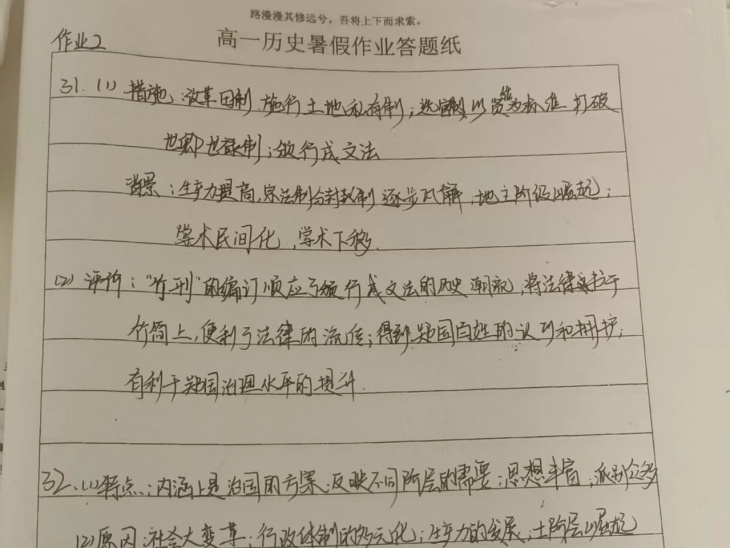 路漫漫其修远兮，吾将上下而求索。
作业2
高一历史暑假作业答题纸
31.(1) 措施：改革田制，施行土地私有制；选官制以贤为标准 打破
世卿世禄制；颁行成文法
背景：生产力提高，宗法制分封制逐步瓦解，地主阶级崛起；
学术民间化，学术下移.
(2) 评价："竹刑"的编订顺应了颁行成文法的历史潮流，将法律 于
竹简上，便利了法律的流传；得到郑国百姓的认可和拥护；
有利于郑国治理水平的提升.
32.(1)特点：内涵上是治国的方案；反映不同阶层的需要；思想丰富，派别众多
(2)原因：社会大变革；行政体制的多元化；生产力的发展，士阶层崛起